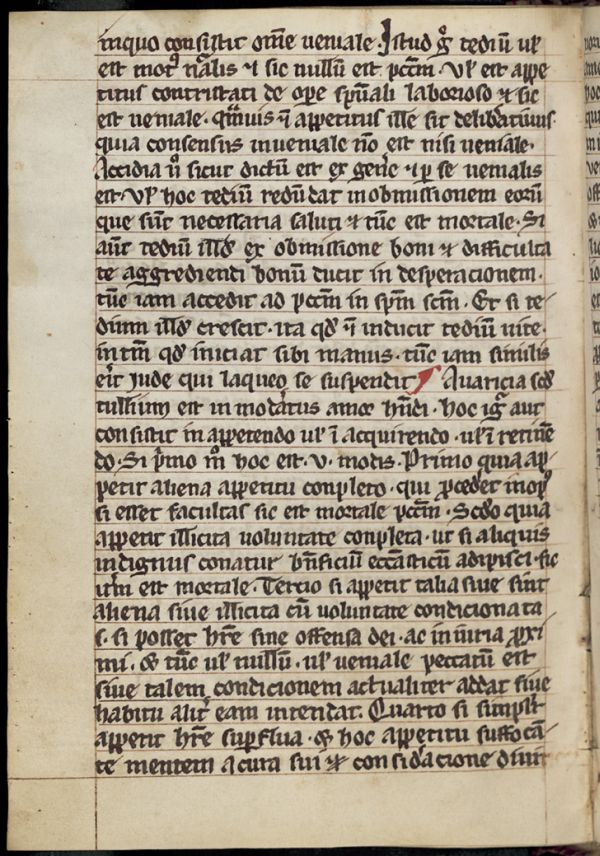 inquo consistit om̄e ueniale. Istud g͛ tediū ul̓
est mot᷒ n̄alis ⁊ sic nullū est pctm̄. Vl̓ est appe
titus contristati de oꝑe spūali laborioso ⁊ sic
est ueniale. qͣmuis ī appetitus ille sit delibatiuus
quia consensus inueniale nō est nisi ueniale.
Accidia ū sicut dictū est ex gene ⁊ ꝑ se uenialis
est. Vl̓ hoc tediū redūdat inobmissionem eorū
que sūt necessaria saluti ⁊ tūc est mortale. Si
aūt tediū illd̓ ex obmissione boni ⁊ difficulta
te aggrediendi bonū ducit in desperacionem.
tūc iam accedit ad pctm̄ in spm̄ scm̄. Et si te
dium illd̓ crescit. ita qd̓ ī inducit tediū uite.
in tm̄ qd̓ iniciat sibi manus. tūc iam similis
erit iude qui laqueo se suspendit Auaricia scd̓
tullium est in modatus amor hn̄di. hoc igͣ aut
consistit in appetendo ul̓ ī acquirendo. ul̓ ī retinē
do. Si pͥmo m̊ hoc est .v. modis. Primo quia ap
petit aliena appetitu conpleto. qui ꝓcedet inop᷒
si esset facultas sic est mortale pctm̄. Scd̓o quia
appetit illicita uoluntate conpleta. ut si aliquis
indignus conatur bn̄ficiū ecc̄asticū adipisci. sic
itm̄ est mortale. Tercio si appetit talia siue sint
aliena siue illicita cū uoluntate condicionata
s. si posset hr̄e sine offensa dei. ac iniuria ꝓxi
mi. ⁊ tūc ul̓ nullū. ul̓ ueniale peccatum est
siue talem condicionem actualiter addat siue
habitu alit̓ eam intendat. Quarto si simpl̓r
appetit hr̄e suꝑflua. ⁊ hoc appetitu suffocā
te mentem a cura sui ⁊ considacione diuit